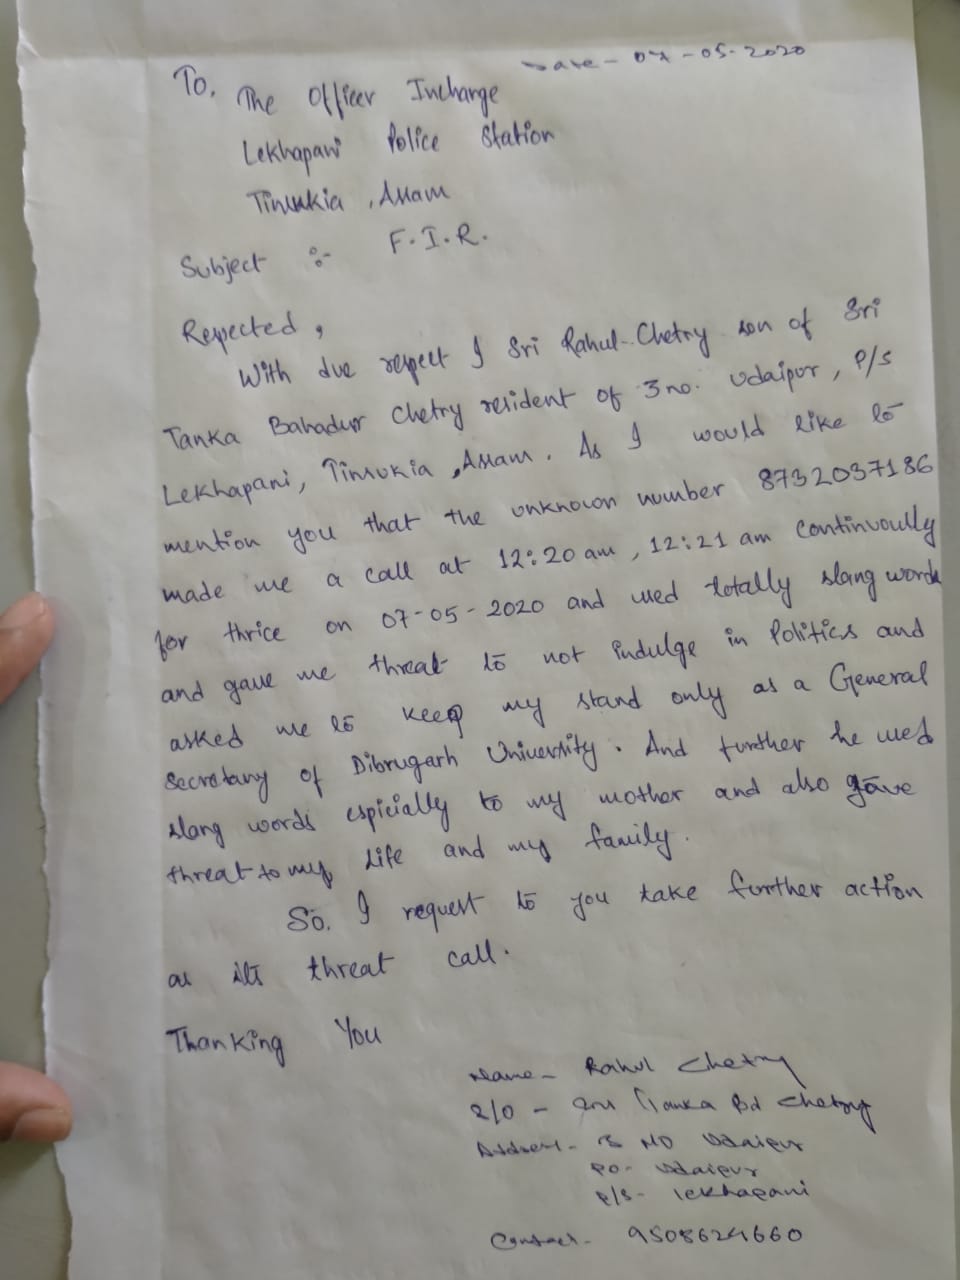 Date - 07-05-2020
To,
The Officer Incharge
Lekhapani Police Station
Tinsukia, Assam
Subject :- F.I.R.
Respected,
With due respect I Sri Rahul Chetry son of Sri
Tanka Bahadur Chetry resident of 3 no. Udaipur, P/S
Lekhapani, Tinsukia, Assam. As I would like to
mention you that the unknown number 8732037186
made me a call at 12:20 am, 12:21 am continuously
for thrice on 07-05-2020 and used totally slang words
and gave me threat to not indulge in Politics and
asked me to keep my stand only as a General
Secretary of Dibrugarh University. And further he used
slang words espicially to my mother and also gave
threat to my life and my family.
So, I request to you take further action
as its threat call.
Thanking You
Name - Rahul Chetry
S/O - Sri Tanka Bd Chetry
Address - 3 NO Udaipur
PO - Udaipur
P/S - Lekhapani
Contact - 9508624660